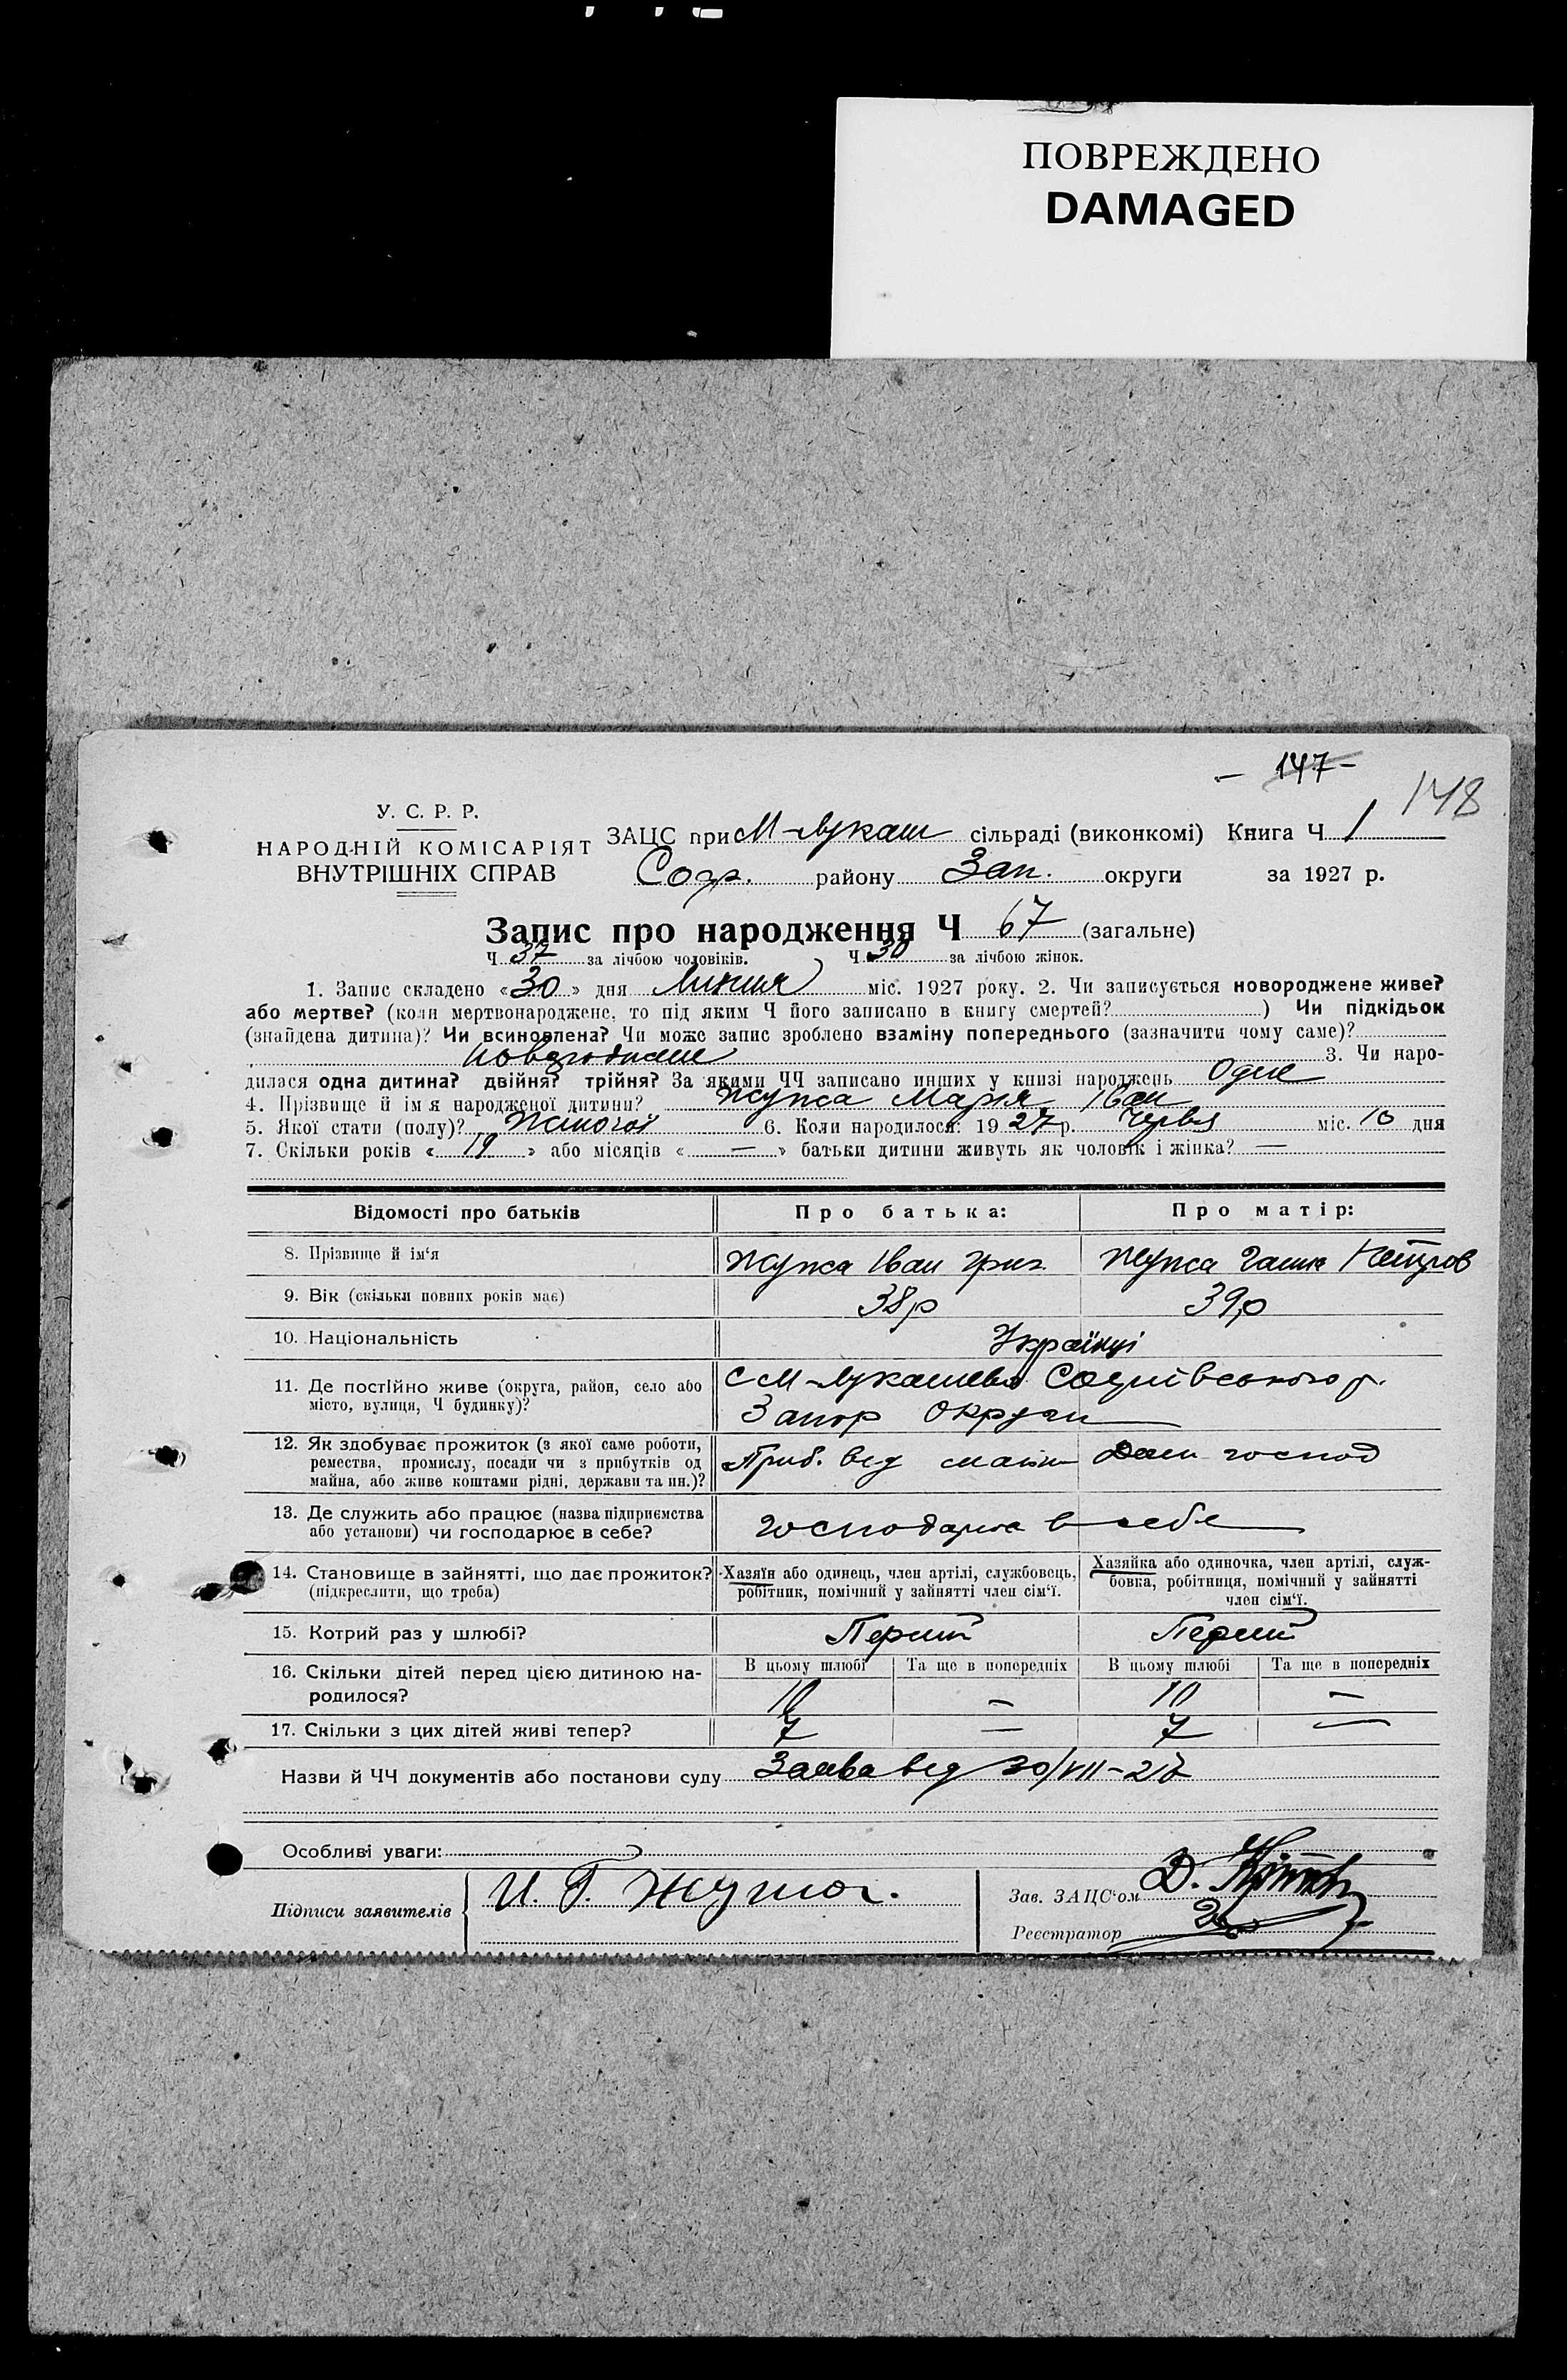 ПОВРЕЖДЕНО
DAMAGED
- 147 -
148
У. С. Р. Р.
НАРОДНІЙ КОМІСАРІЯТ
ВНУТРІШНІХ СПРАВ
ЗАЦС при М-Лукаш сільраді (виконкомі) Книга Ч 1
району Зап. округи за 1927 р.
Запис про народження Ч 67 (загальне)
Ч 37 за лічбою чоловіків. Ч 30 за лічбою жінок.
1. Запис складено «30» дня Липня міс. 1927 року. 2. Чи записується новороджене живе?
або мертве? (коли мертвонароджене, то під яким Ч його записано в книгу смертей? ) Чи підкідьок
(знайдена дитина)? Чи всиновлена? Чи може запис зроблено взаміну попереднього (зазначити чому саме)?
3. Чи наро-
дилася одна дитина? двійня? трійня? За якими ЧЧ записано инших у книзі народжень Одне
4. Прізвище й ім'я народженої дитини? Жупса Марія Іван
5. Якої стати (полу)? Жіночої 6. Коли народилося: 1927 р. Червя міс. 10 дня
7. Скільки років «19» або місяців « — » батьки дитини живуть як чоловік і жінка? —
Відомості про батьків Про батька: Про матір:
8. Прізвище й ім'я Іван Григ.
9. Вік (скільки повних років має) 38 р 39 р
10. Національність Українці
11. Де постійно живе (округа, район, село або місто, вулиця, Ч будинку)? С М-Лукашева
Запор Округи
12. Як здобуває прожиток (з якої саме роботи, ремества, промислу, посади чи з прибутків од майна, або живе коштами рідні, держави та ин.)? Приб. вед майна Дом господ
13. Де служить або працює (назва підприємства або установи) чи господарює в себе? в себе
14. Становище в зайнятті, що дає прожиток? (підкреслити, що треба) Хазяїн або одинець, член артілі, службовець, робітник, помічний у зайнятті член сім'ї. Хазяйка або одиночка, член артілі, служ-бовка, робітниця, помічний у зайнятті член сім'ї.
15. Котрий раз у шлюбі? Перший Перший
16. Скільки дітей перед цією дитиною на-родилося? В цьому шлюбі Та ще в попередніх В цьому шлюбі Та ще в попередніх
10 — 10 —
17. Скільки з цих дітей живі тепер? 7 — 7 —
Назви й ЧЧ документів або постанови суду Заява вед 30/VII-27
Особливі уваги:
Підписи заявителів И. Г.
Зав. ЗАЦС'ом Д.
Реєстратор